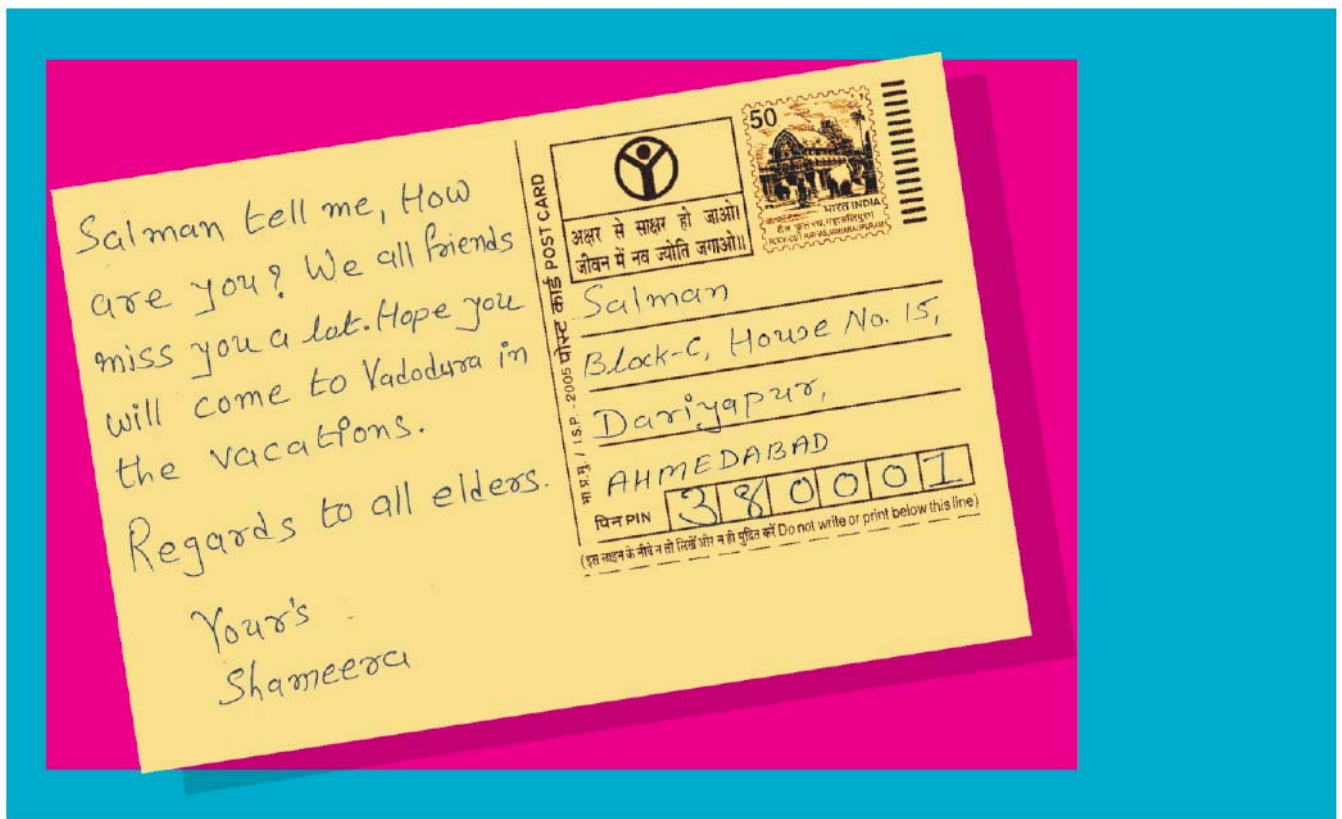 Salman tell me, How
are you? We all friends
miss you a lot. Hope you
will come to Vadodura in
the vacations.
Regards to all elders.
Your's
Shameera
भा.प्र.मु. / I.S.P. - 2005 पोस्ट कार्ड POST CARD
अक्षर से साक्षर हो जाओ।
जीवन में नव ज्योति जगाओ॥
50
भारत INDIA
Salman
Block-C, House No. 15,
Dariyapur,
AHMEDABAD
पिन PIN 380001
(इस लाइन के नीचे न तो लिखें और न ही मुद्रित करें Do not write or print below this line)